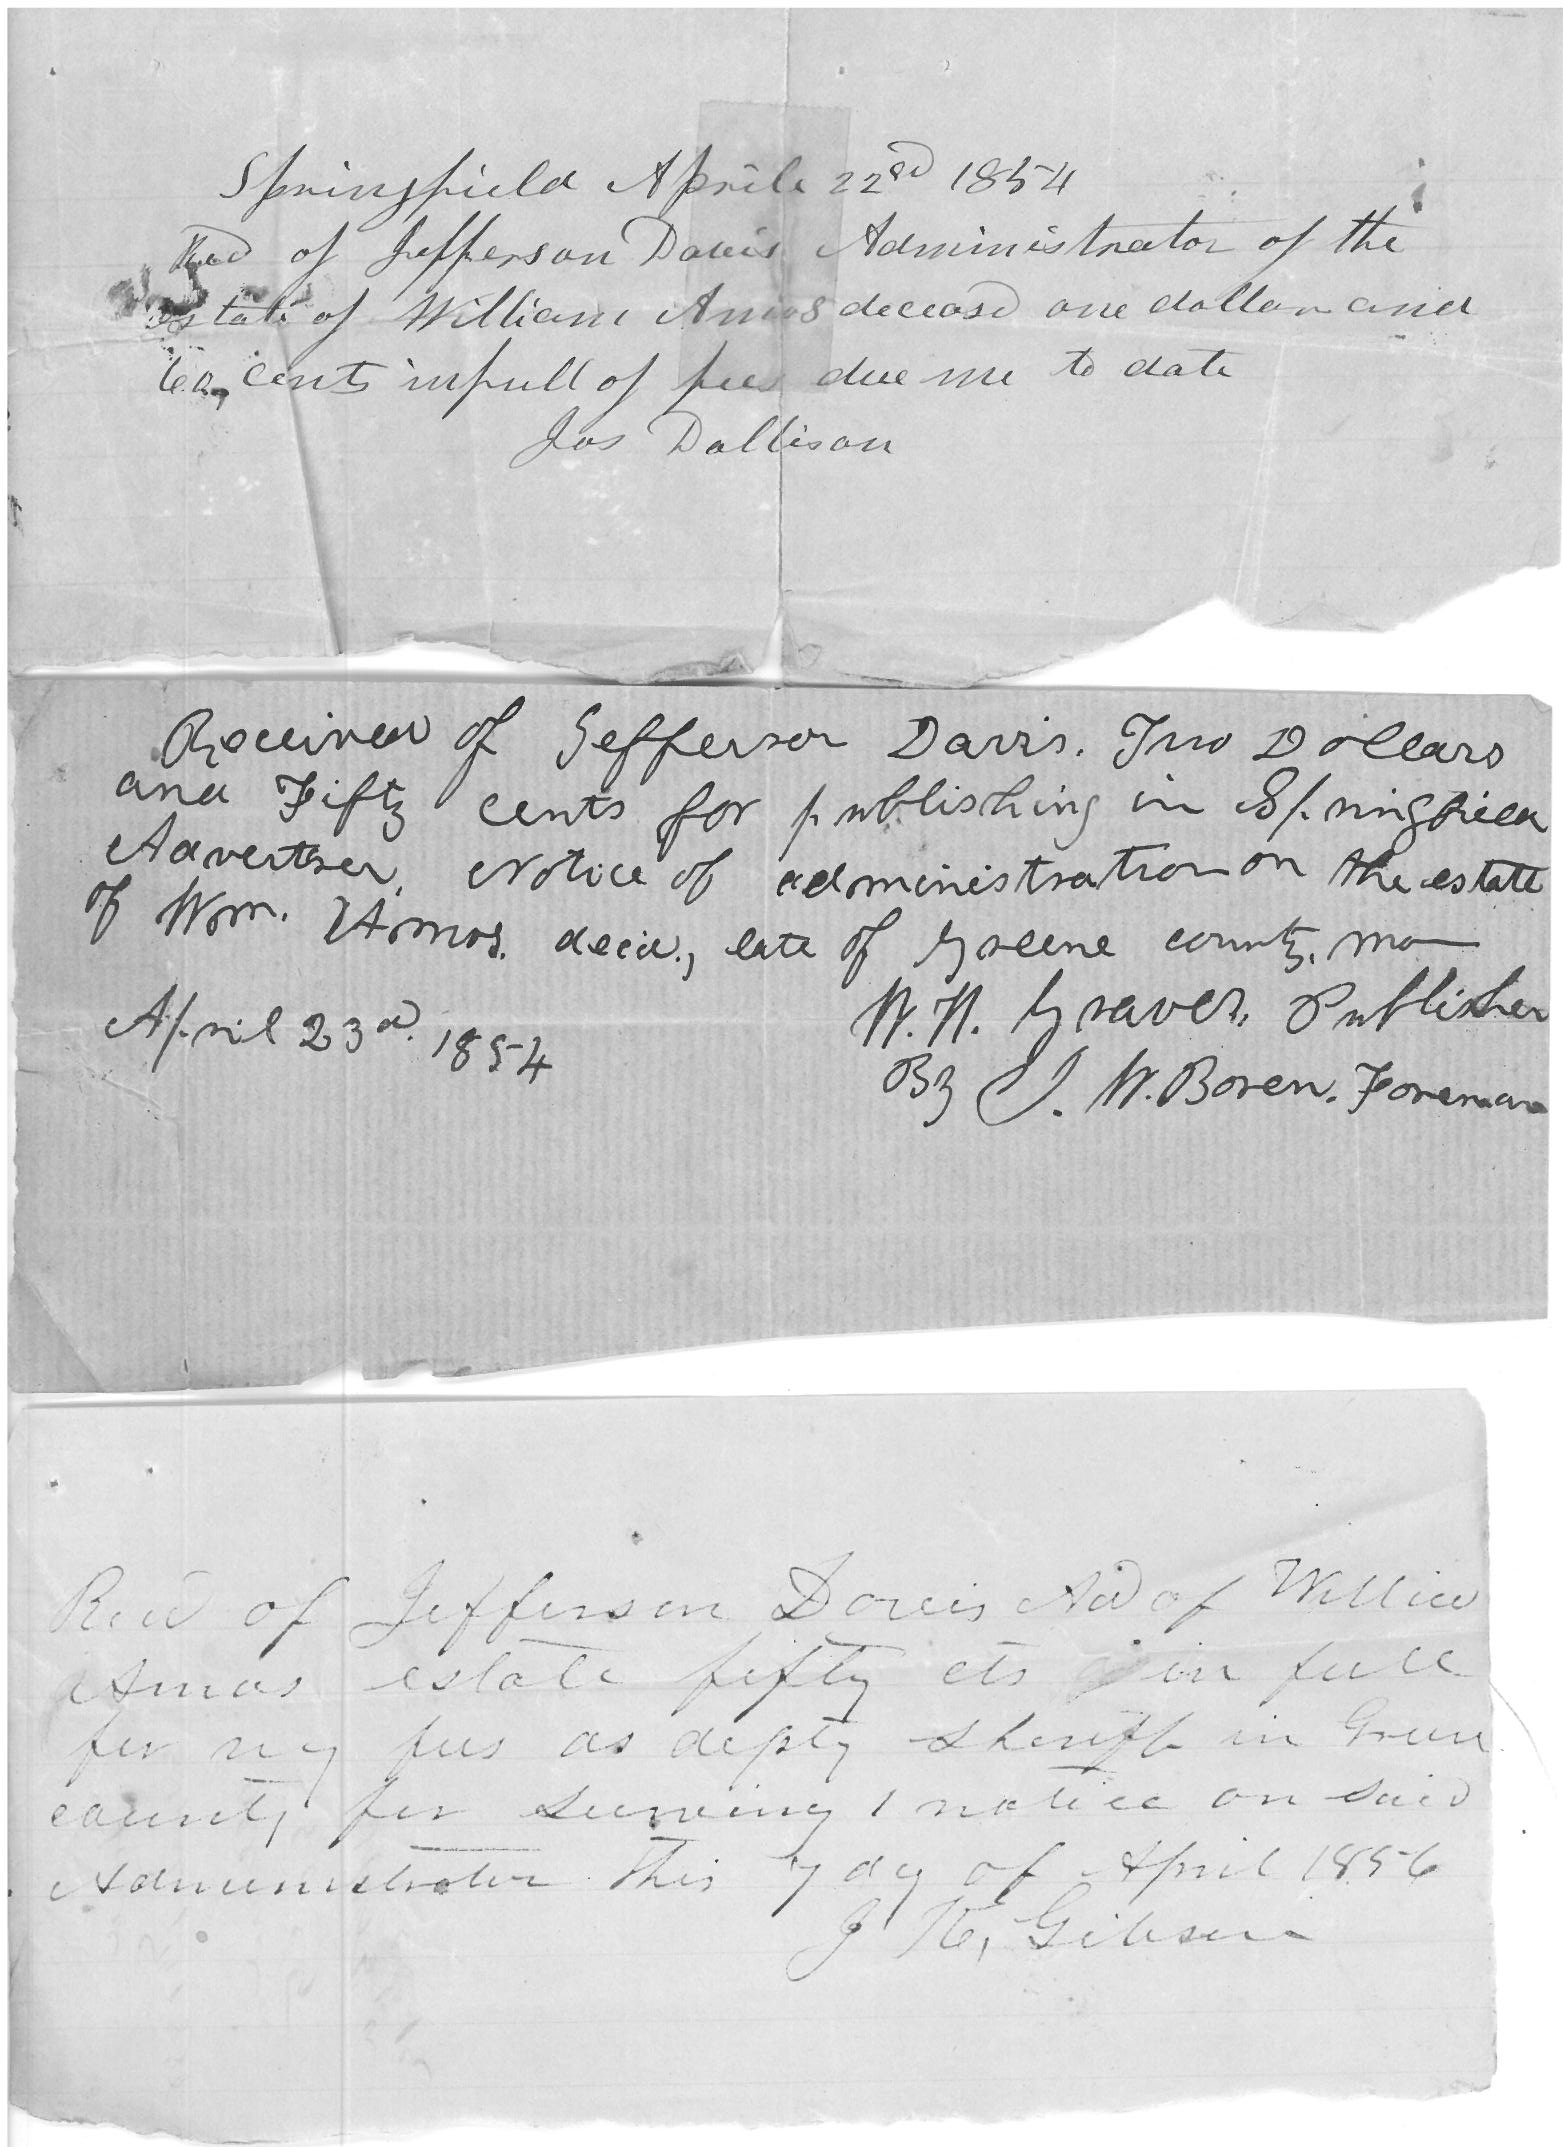 Springfield Aprile 22nd 1854
Recd of Jefferson Davis Administrator of the
Estate of William Amos deceasd one dollar and
cents in full of fees due me to date
Jos Dallison
Received of Jefferson Davis. Two Dollars
and Fifty cents for publishing in Springfield
Advertser, Notice of administration on the estate
of Wm. Amos. decd., late of Greene county, Mo
April 23d. 1854
W. H. Graves, Publisher
By J. W. Boren. Foreman
Recd of Jefferson Davis Ad of
Amos estate fifty cts in full
for my fees as depty Sheriff in Green
county for serving 1 notice on said
Administrator this 7 day of April 1856
J Gibson